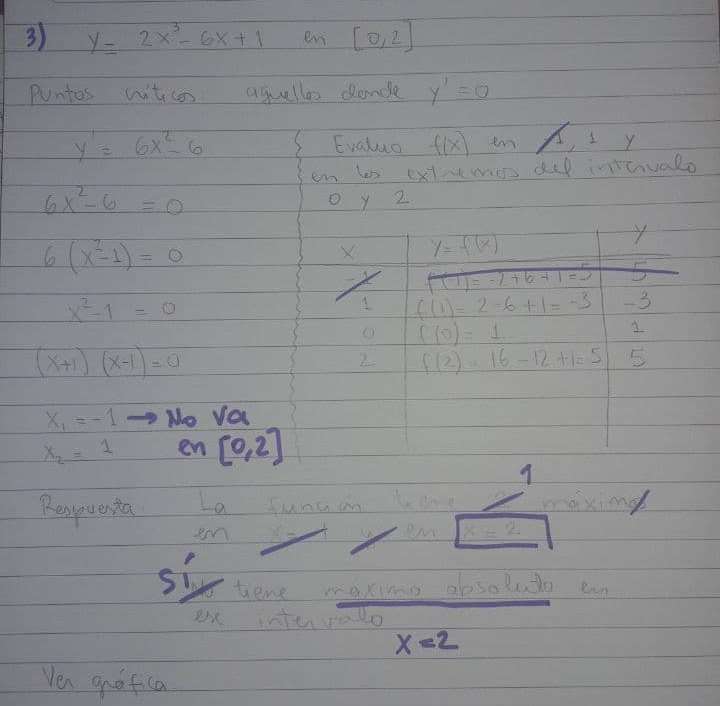 3) y = 2x³ - 6x + 1 en [0,2]
Puntos críticos: aquellos donde y' = 0
y' = 6x² - 6
6x² - 6 = 0
6(x² - 1) = 0
x² - 1 = 0
(x+1) (x-1) = 0
x₁ = -1 → No va
x₂ = 1 en [0,2]
Evaluo f(x) en -1, 1 y
en los extremos del intervalo
0 y 2
x y = f(x) y
-1 f(-1) = -2+6+1 = 5 5
1 f(1) = 2-6+1 = -3 -3
0 f(0) = 1 1
2 f(2) = 16-12+1=5 5
1
Respuesta: La función tiene 2 máximos
en x=-1 y en x=2
SÍ No tiene máximo absoluto en
ese intervalo
x=2
Ver gráfica